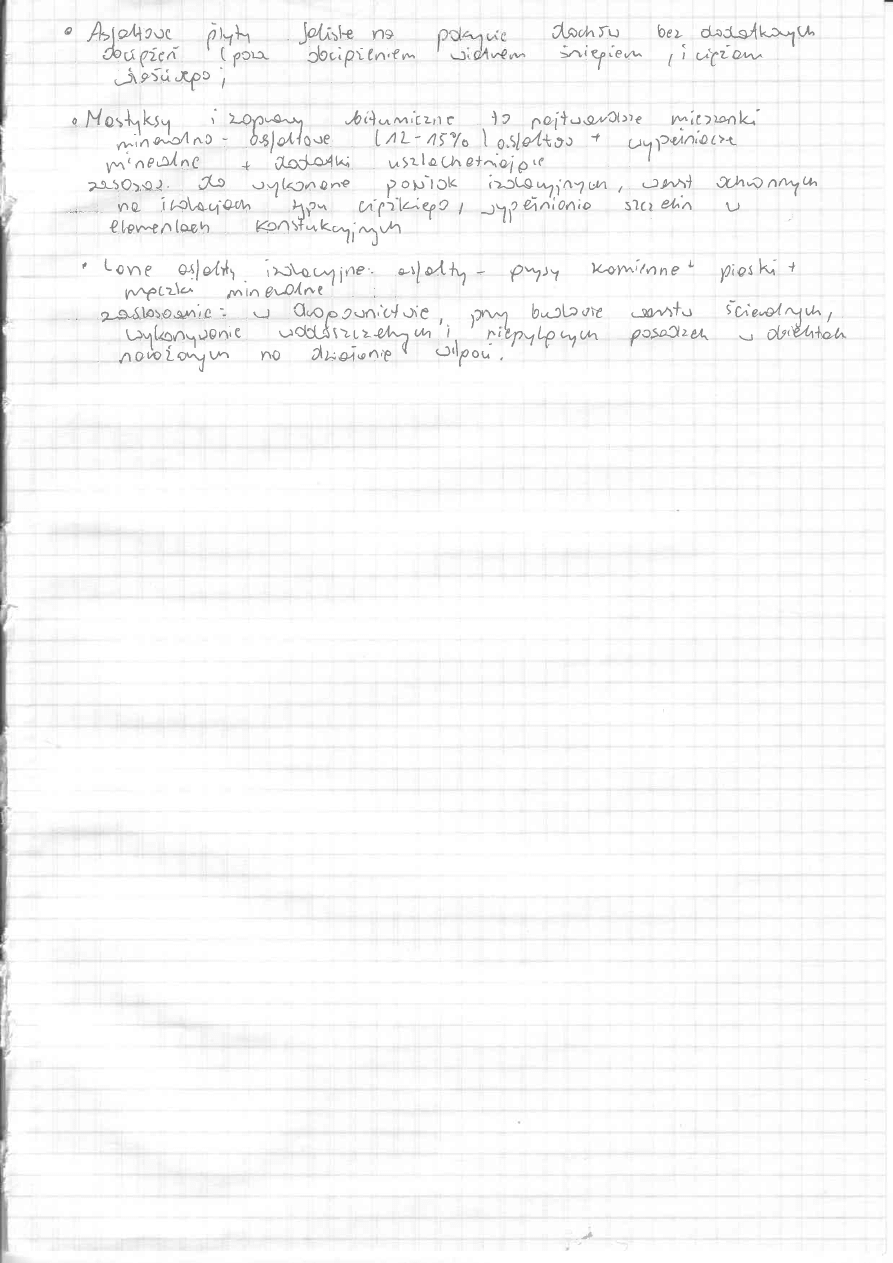 • Asfaltowe płyty faliste na pokrycie dachów bez dodatkowych
obciążeń (poza obciążeniem wiatrem śniegiem, i ciężam
własnego;
• Mastyksy i zaprawy bitumiczne to najtwardsze mieszanki
mineralno - asfaltowe (12-15% asfaltos + wypełniacze
mineralne + dodatki uszlachetniające
zasosoz. do wykonane powłok izolacyjnych, warst ochronnych
na izolacjach typu ciężkiego, wypełnionia szczelin w
elementach konstukcyjnych
• Lane asfalty izolacyjne: asfalty - grysy kamienne + piaski +
mączki mineralne
zastosoanie: w drogownictwie, przy budowie warstw ścieralnych,
wykonywanie wodoszczelnych i niepylących posadzek w obiektach
narażonych na działanie wilgoci.